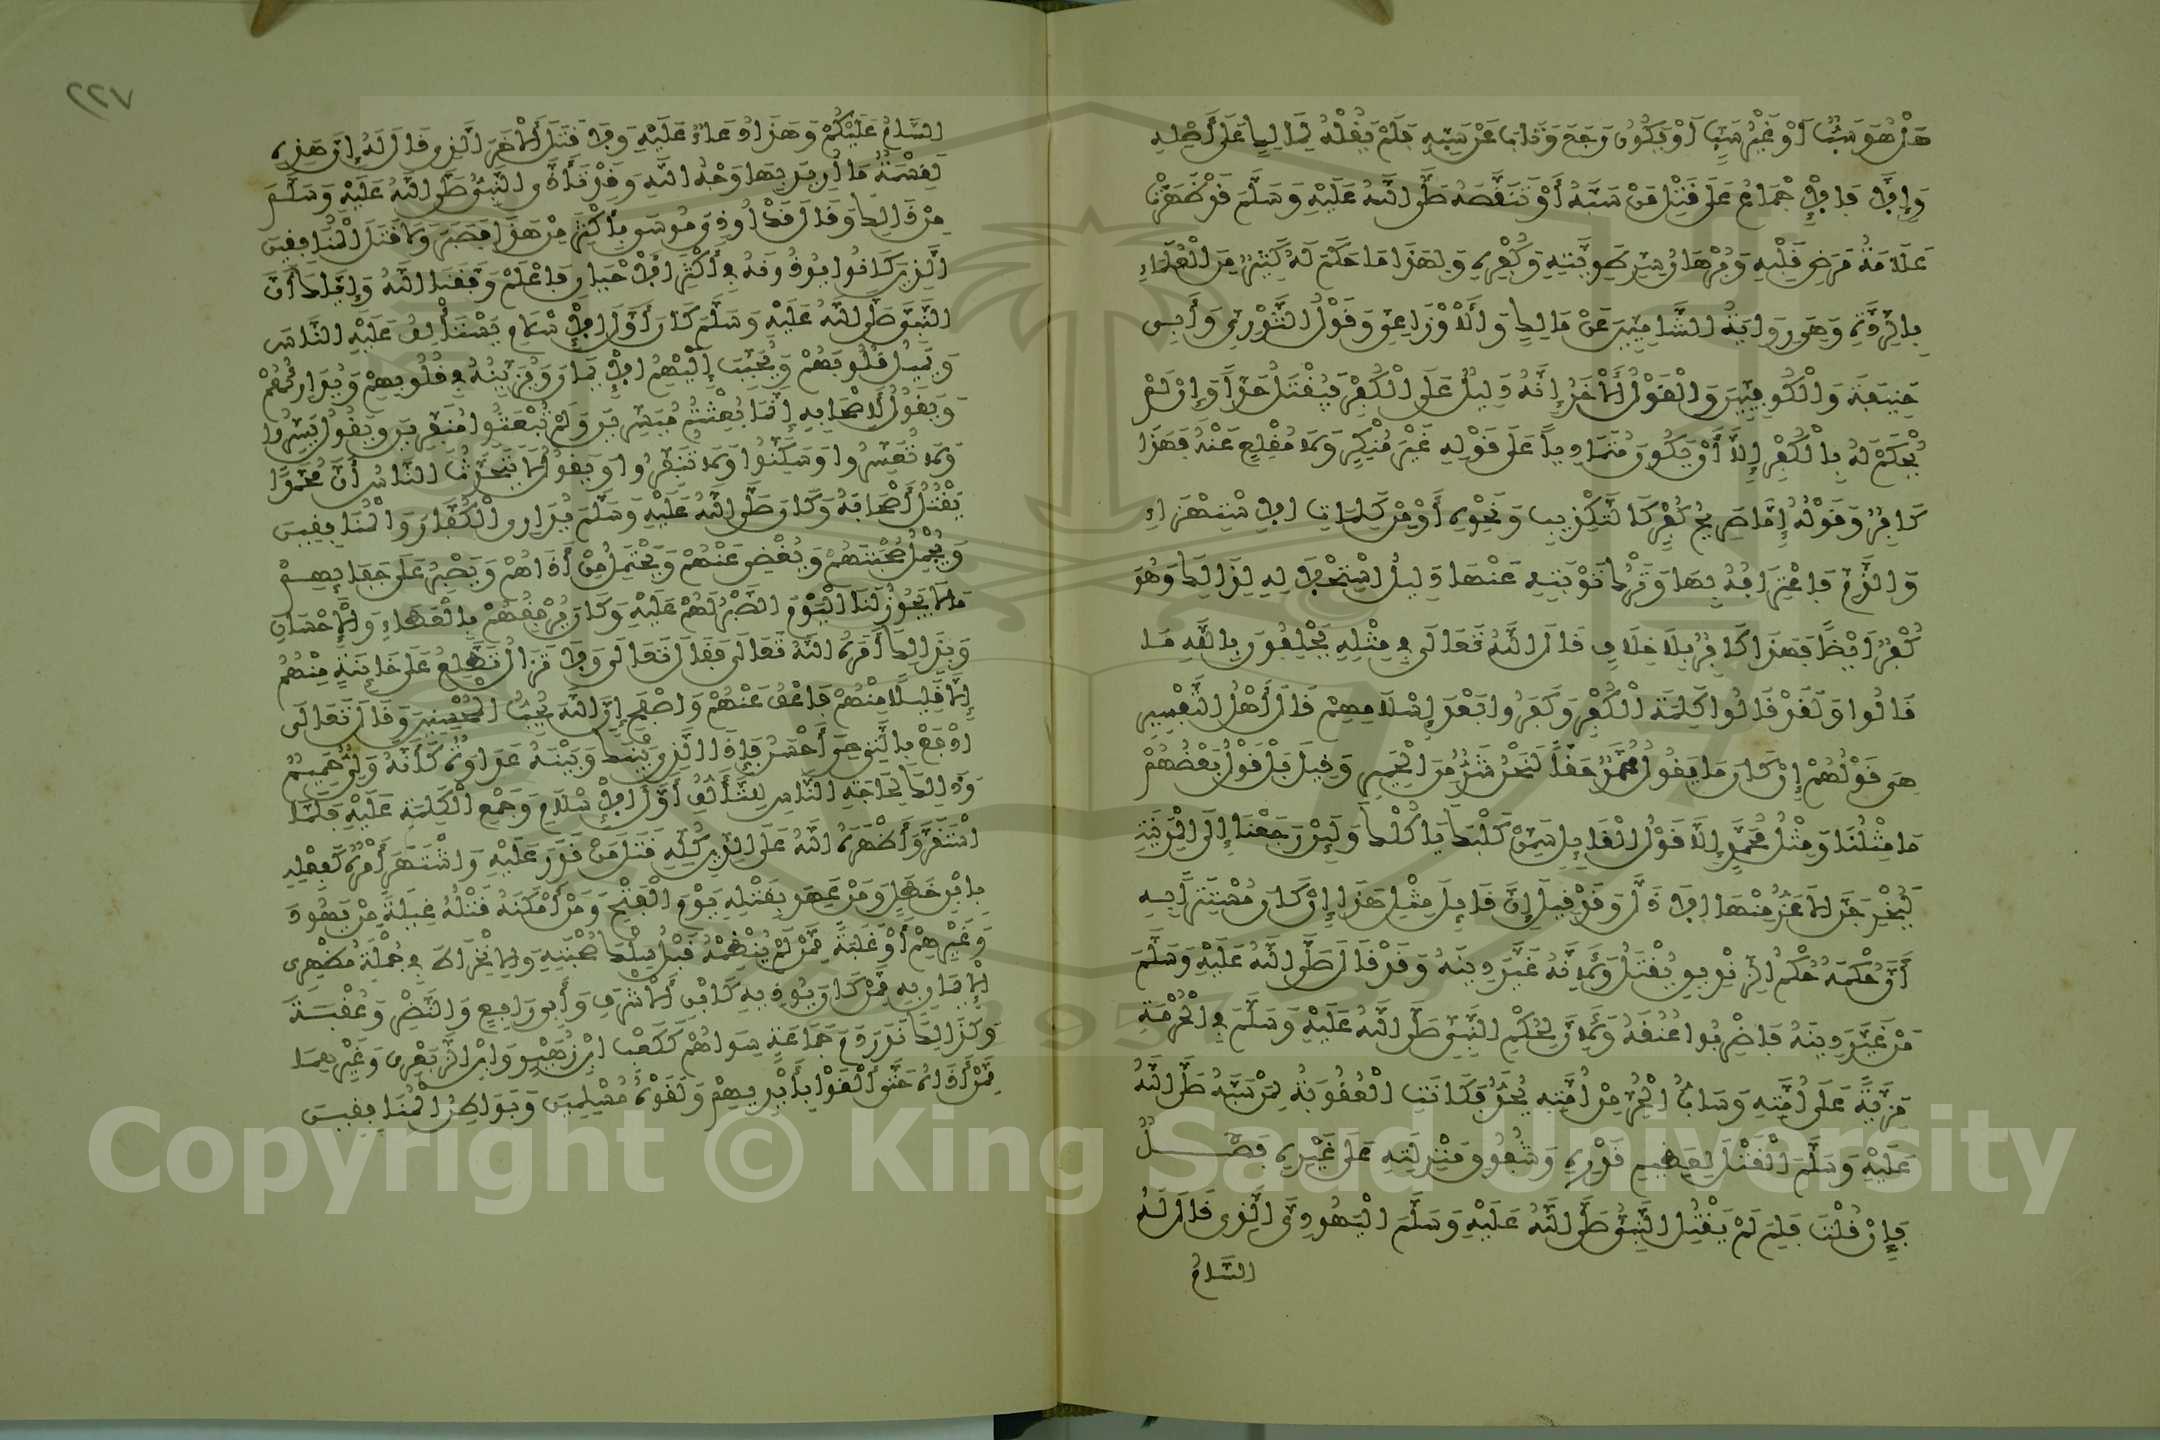 هل هو سب أو غير سب أو يكون رجع وتاب عن سبه فلم يقله لذلك على أصله
وإلا فالإجماع على قتل من سبه أو تنقصه صلى الله عليه وسلم
علامة مرض قلبه وبرهان سر طويته وكفره ولهذا ما حكم له كثير من العلماء
بالردة وهي رواية الشاميين عن مالك والأوزاعي وقول الثوري وأبي
حنيفة والكوفيين والقول الآخر إنه دليل على الكفر فيقتل حدا وإن لم
يحكم له بالكفر إلا أن يكون متماديا على قوله غير منكر ولا مقلع عنه فهذا
كافر وقوله إما صريح كفر كالتكذيب ونحوه أو من كلمات الاستهزاء
والذم فاعترافه بها وترك توبته عنها دليل استحلاله لذلك وهو
كفر أيضا فهذا كافر بلا خلاف قال الله تعالى في مثله يحلفون بالله ما
قالوا ولقد قالوا كلمة الكفر وكفروا بعد إسلامهم قال أهل التفسير
هي قولهم إن كان ما يقول محمد حقا لنحن شر من الحمير وقيل بل قول بعضهم
ما مثلنا ومثل محمد إلا قول القائل سمن كلبك يأكلك ولئن رجعنا إلى المدينة
ليخرجن الأعز منها الأذل وقد قيل إن قائل مثل هذا إن كان مستترا به
أن حكمه حكم الزنديق يقتل ولأنه غير دينه وقد قال صلى الله عليه وسلم
من غير دينه فاضربوا عنقه ولأن لحكم النبي صلى الله عليه وسلم في الحرمة
مزية على أمته وساب الحر من أمته يحد فكانت العقوبة لمن سبه صلى الله
عليه وسلم القتل لعظيم قدره وشفوف منزلته على غيره فصل
فإن قلت فلم لم يقتل النبي صلى الله عليه وسلم اليهودي الذي قال له
السام
٢٢٧
السام عليكم وهذا دعاء عليه ولا قتل الآخر الذي قال له إن هذه
لقسمة ما أريد بها وجه الله وقد تأذى النبي صلى الله عليه وسلم
من ذلك وقال قد أوذي موسى بأكثر من هذا فصبر ولا قتل المنافقين
الذين كانوا يؤذونه في أكثر الأحيان فاعلم وفقنا الله وإياك أن
النبي صلى الله عليه وسلم كان أول الإسلام يستألف عليه الناس
ويميل قلوبهم ويحبب إليهم الإيمان ويزينه في قلوبهم ويدارئهم
ويقول لأصحابه إنما بعثتم مبشرين ولم تبعثوا منفرين ويقول يسروا
ولا تعسروا وسكنوا ولا تنفروا ويقول لا يتحدث الناس أن محمدا
يقتل أصحابه وكان صلى الله عليه وسلم يداري الكفار والمنافقين
ويجمل صحبتهم ويغضي عنهم ويحتمل من أذاهم ويصبر على جفائهم
ما لا يجوز لنا اليوم الصبر لهم عليه وكان يرفقهم بالعطاء والإحسان
وبذلك أمره الله تعالى فقال تعالى ولا تزال تطلع على خائنة منهم
إلا قليلا منهم فاعف عنهم واصفح إن الله يحب المحسنين وقال تعالى
ادفع بالتي هي أحسن فإذا الذي بينك وبينه عداوة كأنه ولي حميم
وذلك لحاجة الناس للتألف أول الإسلام وجمع الكلمة عليه فلما
استقر وأظهره الله على الدين كله قتل من قدر عليه واشتهر أمره كفعله
بابن خطل ومن عهد بقتله يوم الفتح ومن أمكنه قتله غيلة من يهود
وغيرهم أو غلبة ممن لم ينظمه قبل سلك صحبته والانخراط في جملة مظهري
الإيمان به ممن كان يؤذيه كابن الأشرف وأبي رافع والنضر وعقبة
وكذلك نذر دم جماعة سواهم ككعب ابن زهير وابن الزبعرى وغيرهما
ممن آذاه حتى ألقوا بأيديهم ولقوه مسلمين وبواطن المنافقين